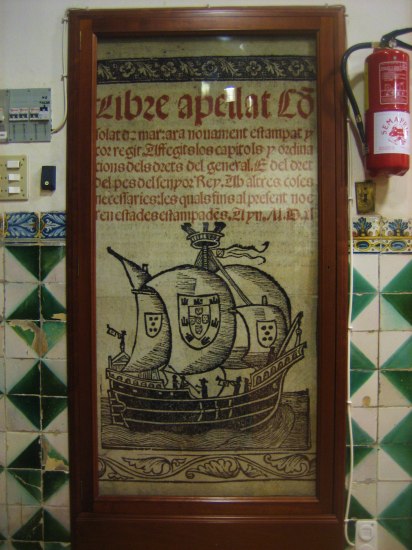 Libre apellat Cō
solat d' mar: ara novament estampat y
corregit. Affegits los capitols y ordina
cions dels drets del general, E del dret
del pes del senyor Rey. Ab altres coses
necessaries: les quals fins al present no e
ren estades estampades. Any.
SEMAB